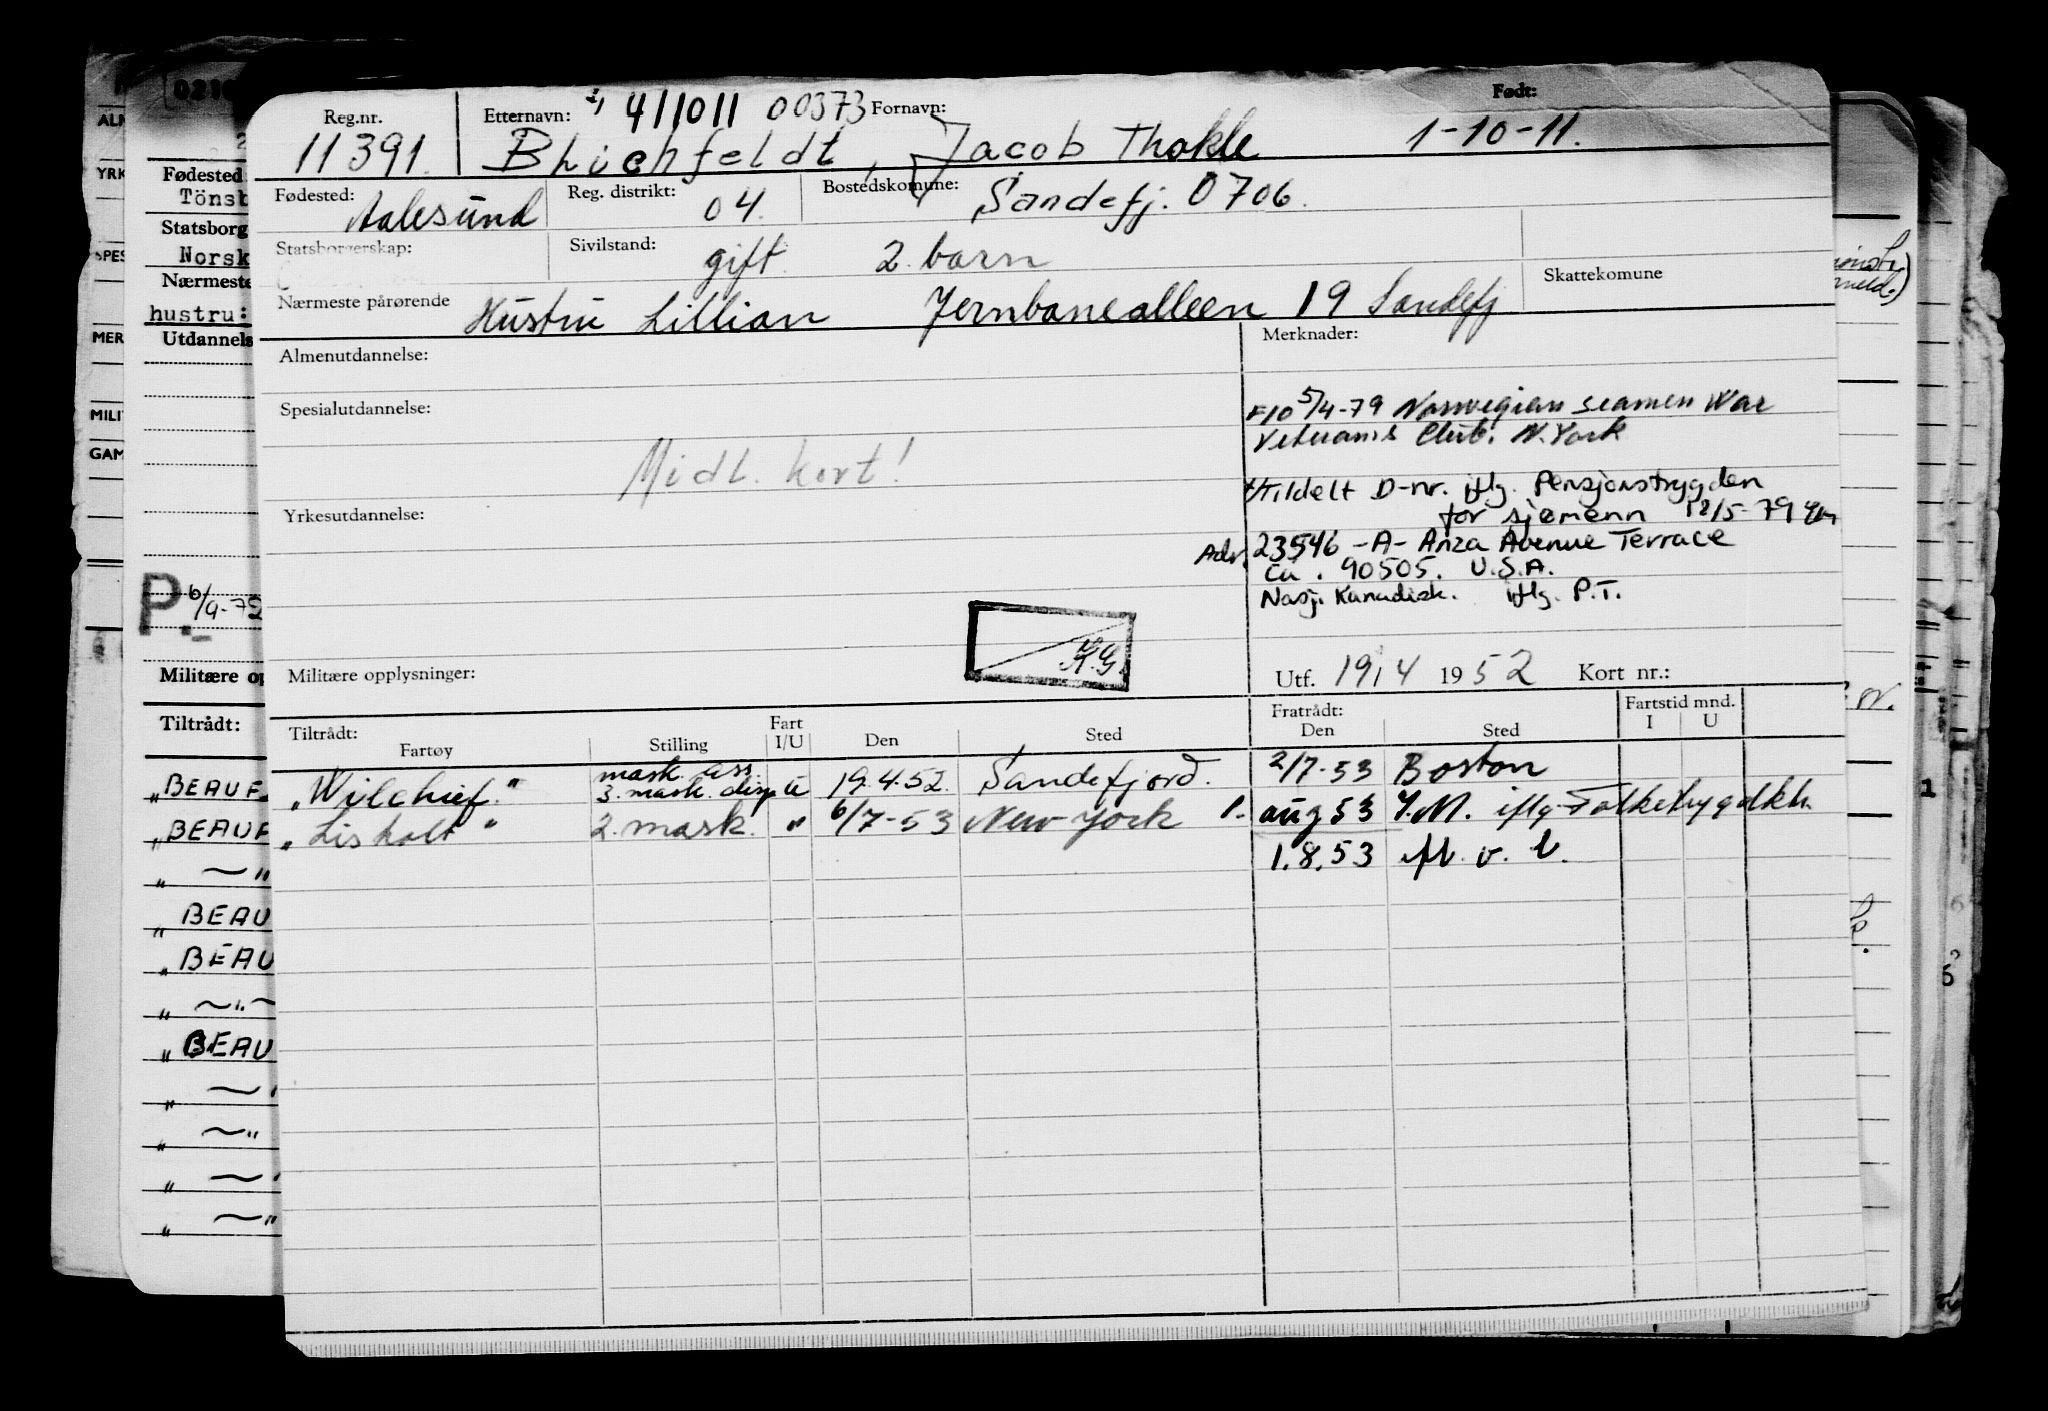 0210
Reg.nr.
11391.
Etternavn: 411011 00373 Fornavn:
Født:
Blichfeldt, Jacob Thokle 1-10-11.
Fødested: Aalesund
Reg. distrikt: 04.
Bostedskomune: Sandefj. 0706.
Statsborgerskap:
Sivilstand: gift. 2 barn
Skattekomune
Nærmeste pårørende Hustru Lillian Jernbanealleen 19 Sandefj
Almenutdannelse:
Merknader:
F10 5/4-79 Norwegian seamen War
Veterans Club. N. York
Spesialutdannelse:
Midl. kort!
Tildelt D-nr. iflg. Pensjonstrygden
for sjømenn 18/5-79
Yrkesutdannelse:
Adr. 23546 -A- Anza Avenue Terrace
Ca. 90505. U.S.A.
Nasj. Kanadisk. iflg. P.T.
K.G.
Militære opplysninger:
Utf. 19/4 1952 Kort nr.:
Tiltrådt:
Fartøy Stilling Fart I/U Den Sted
Fratrådt:
Den Sted
Fartstid mnd.
I U
"Wilchief." mask. ass. 3. mask. disp u 19.4.52. Sandefjord. 2/7-53 Boston
"Lisholt" 2. mask. " 6/7-53 New York P. aug 53 iflg. Folketrygdktr.
1.8.53
Fødested:
Tönsb
Statsborg
Norsk
Nærmeste
hustru:
Utdannels
P. 6/9-72
Militære op
Tiltrådt:
"BEAUF
"BEAUF
" ~"
"BEAU
"BEAU
" ~"~
"BEAU
" ~"
" ~"
" ~
" ~"
ALM
YRK
SPES
MER
MILI
GAM
1
6
5